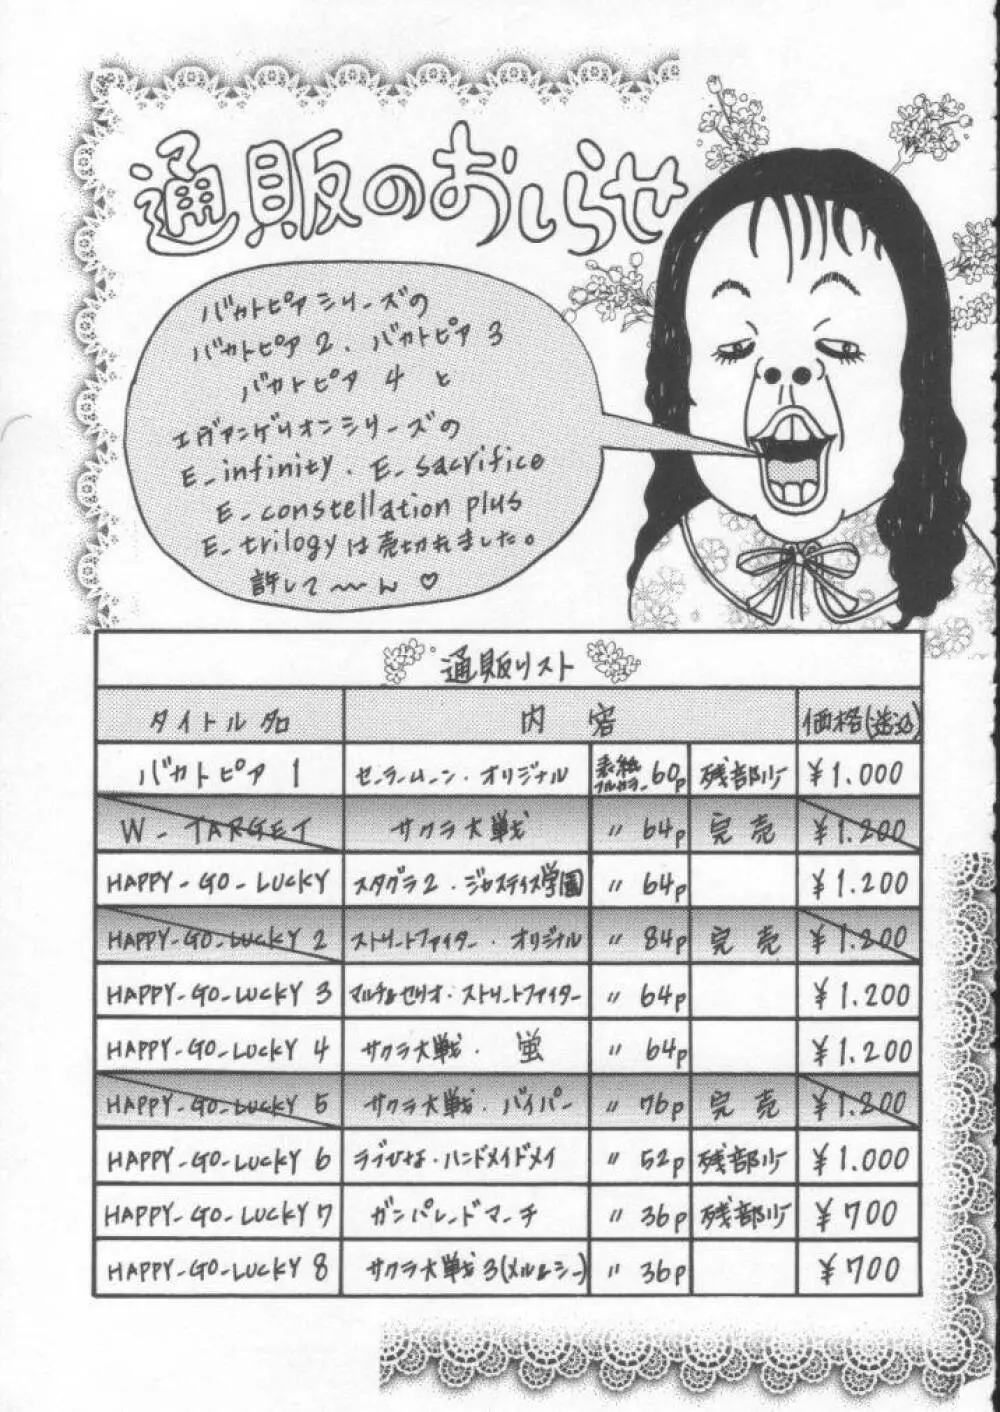 通販のおしらせ
バカトピアシリーズの
バカトピア2、バカトピア3
バカトピア 4 と
エヴァンゲリオンシリーズの
E_infinity. E_sacrifice
E_constellation plus
E_trilogyは売切れました。
許して〜〜ん♡
通販リスト
タイトル名 内容 価格(送込)
バカトピア 1 セーラームーン・オリジナル 表紙フルカラー60p 残部少 ¥1.000
W_TARGET サクラ大戦 〃 64p 完売 ¥1.200
HAPPY-GO-LUCKY スタグラ2・ジャスティス学園 〃 64p ¥1.200
HAPPY-GO-LUCKY 2 ストリートファイター・オリジナル 〃 84p 完売 ¥1.200
HAPPY-GO-LUCKY 3 マルチ&セリオ・ストリートファイター 〃 64p ¥1.200
HAPPY-GO-LUCKY 4 サクラ大戦・蛍 〃 64p ¥1.200
HAPPY-GO-LUCKY 5 サクラ大戦・バイパー 〃 76p 完売 ¥1.200
HAPPY-GO-LUCKY 6 ラブひな・ハンドメイドメイ 〃 52p 残部少 ¥1.000
HAPPY-GO-LUCKY 7 ガンパレードマーチ 〃 36p 残部少 ¥700
HAPPY-GO-LUCKY 8 サクラ大戦3(メル&シー) 〃 36p ¥700